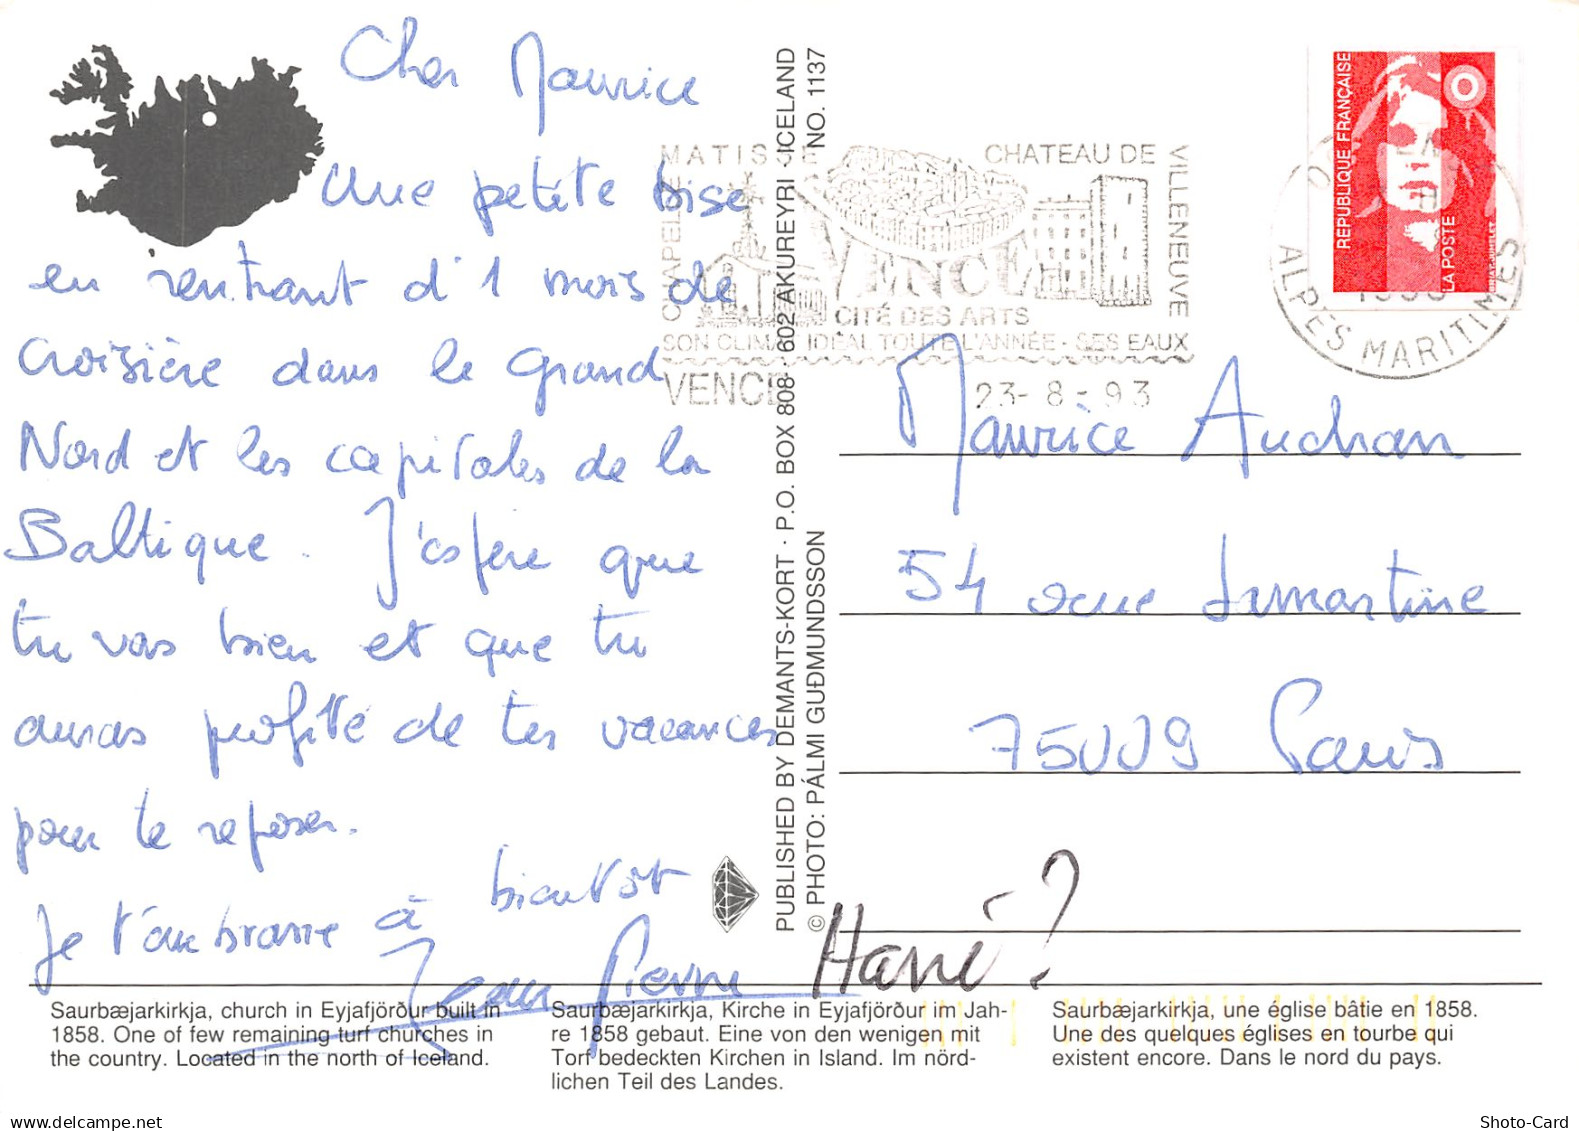 Cher Maurice
Une petite bise
en rentrant d'1 mois de
croisière dans le Grand
Nord et les capitales de la
Baltique. J'espère que
tu vas bien et que tu
auras profité de tes vacances
pour te reposer.
Je t'embrasse à bientôt
Jean Pierre
Hané?
Maurice Audran
54 rue Lamartine
75009 Paris
MATISSE
CHAPELLE
CHATEAU DE
VILLENEUVE
VENCE
CITÉ DES ARTS
SON CLIMAT IDÉAL TOUTE L'ANNÉE - SES EAUX
VENCE 23-8-93
ALPES MARITIMES
REPUBLIQUE FRANÇAISE
LA POSTE
PUBLISHED BY DEMANTS-KORT · P.O. BOX 808 · 602 AKUREYRI · ICELAND
© PHOTO: PÁLMI GUÐMUNDSSON NO. 1137
Saurbæjarkirkja, church in Eyjafjörður built in
1858. One of few remaining turf churches in
the country. Located in the north of Iceland.
Saurbæjarkirkja, Kirche in Eyjafjörður im Jah-
re 1858 gebaut. Eine von den wenigen mit
Torf bedeckten Kirchen in Island. Im nörd-
lichen Teil des Landes.
Saurbæjarkirkja, une église bâtie en 1858.
Une des quelques églises en tourbe qui
existent encore. Dans le nord du pays.
delcampe.net
Shoto-Card